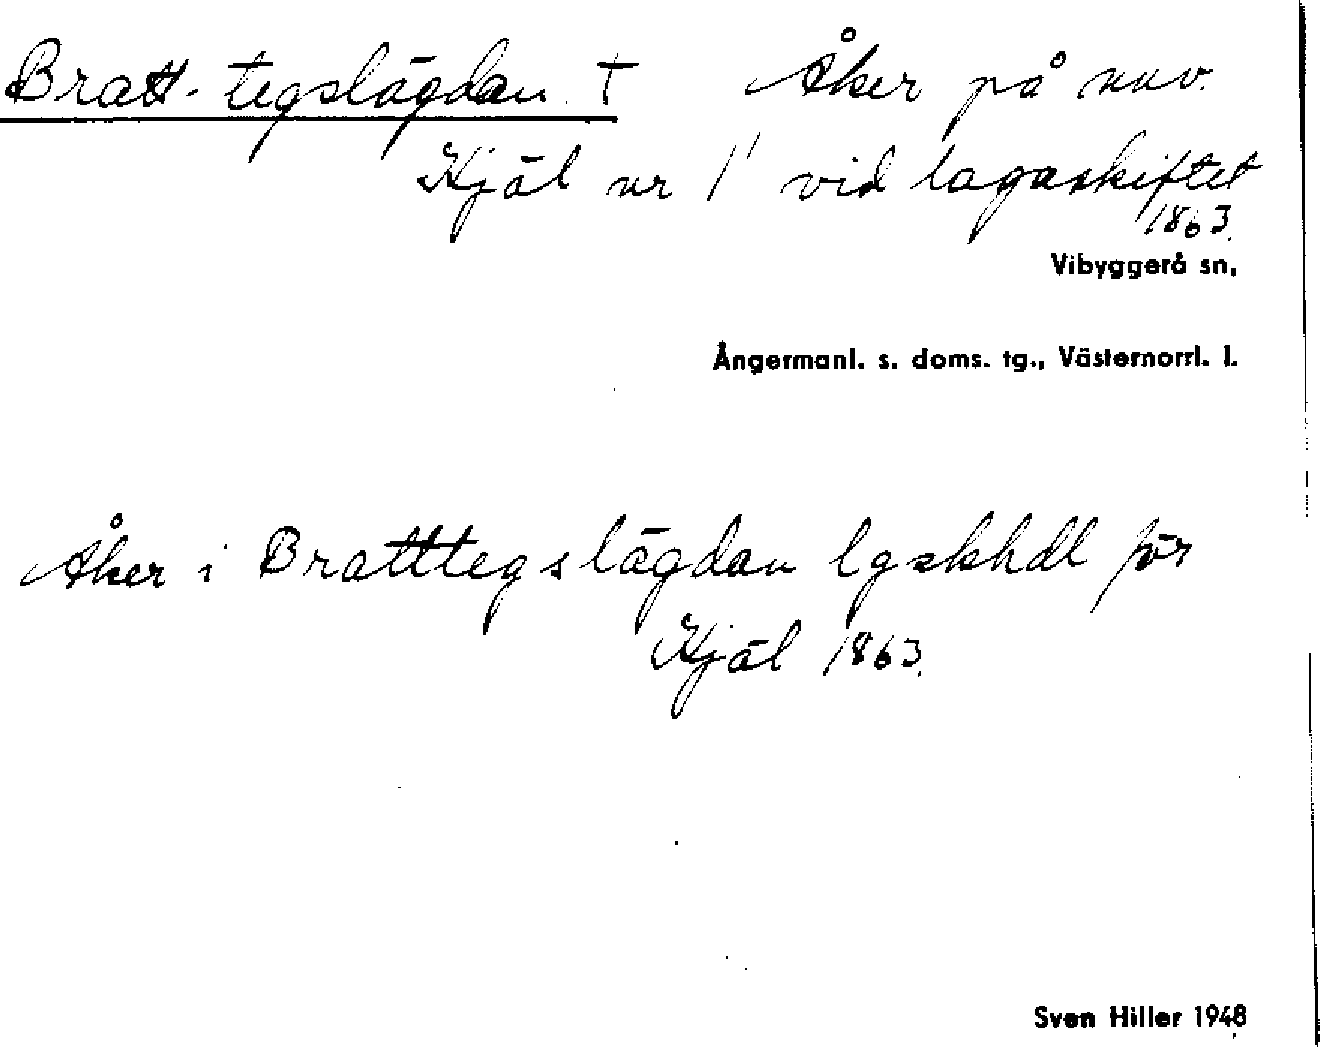 Bratt-tegslägdan † Åker på nuv.
Kjäl nr 1' vid lagaskiftet
1863.
Vibyggerå sn,
Ångermanl. s. doms. tg., Västernorrl. l.
Åker i Bratttegslägdan lgskhdl för
Kjäl 1863.
Sven Hiller 1948